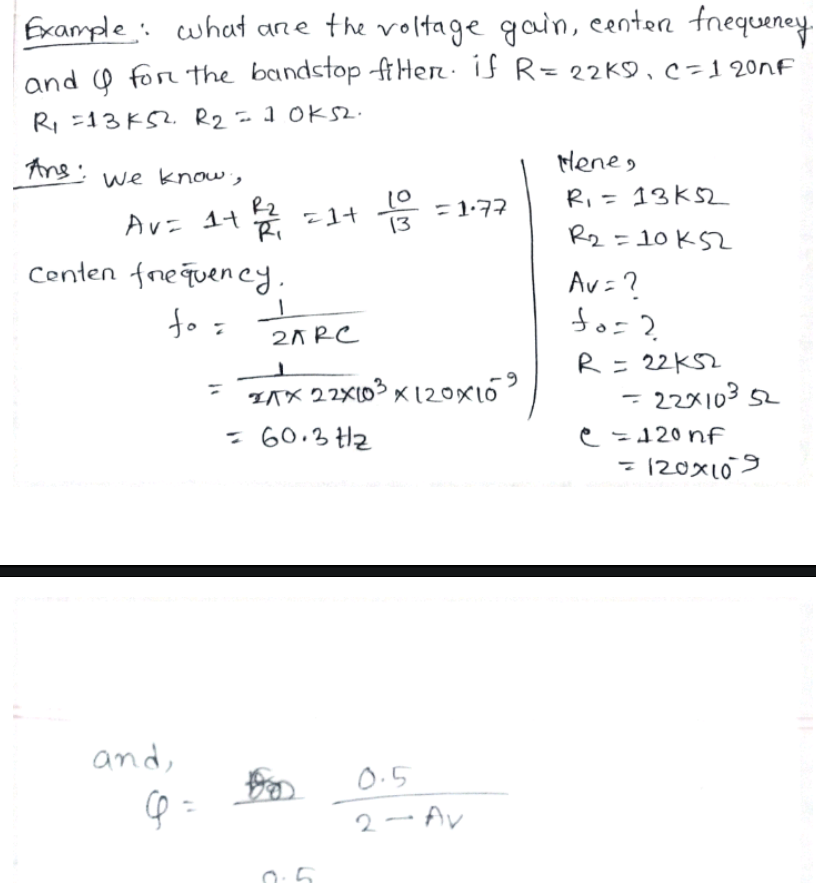 Example: what are the voltage gain, center frequency
and φ for the bandstop filter. if R = 22KΩ, C = 120nF
R₁ = 13KΩ. R₂ = 10KΩ.
Ans: We know,
Av = 1 + R₂/R₁ = 1 + 10/13 = 1.77
Center frequency.
fo = 1/2πRC
= 1/2π × 22×10³ × 120×10⁻⁹
= 60.3 Hz
Here,
R₁ = 13KΩ
R₂ = 10KΩ
Av = ?
fo = ?
R = 22KΩ
= 22×10³ Ω
C = 120 nF
= 120×10⁻⁹
and,
φ = 0.5/2 - Av
0.5